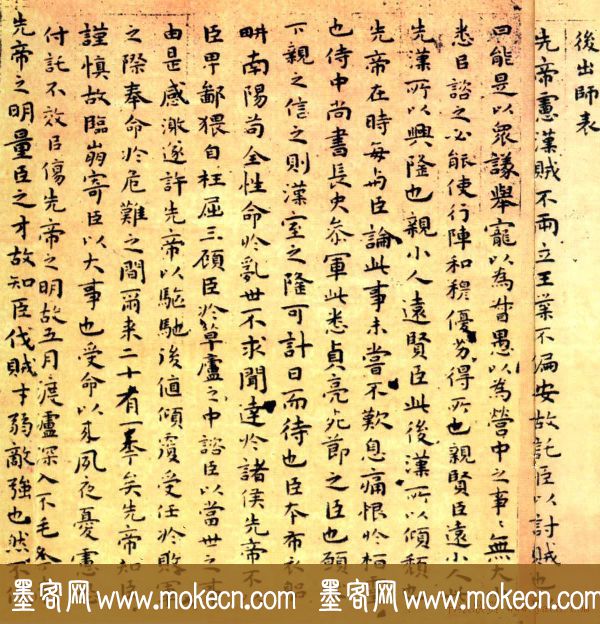 後出師表
先帝慮漢賊不兩立王業不偏安故託臣以討賊也
曰能是以眾議舉寵以為督愚以為營中之事〻無大
悉以諮之必能使行陣和穆優劣得所也親賢臣遠小人
先漢所以興隆也親小人遠賢臣此後漢所以傾頹
先帝在時每与臣論此事未嘗不歎息痛恨於桓
也侍中尚書長史參軍此悉貞亮死節之臣也願
下親之信之則漢室之隆可計日而待也臣本布衣躬
畊南陽苟全性命於亂世不求聞達於諸侯先帝不
臣卑鄙猥自枉屈三顧臣於草廬之中諮臣以當世之事
由是感激遂許先帝以驅馳後值傾覆受任於敗軍
之際奉命於危難之間爾來二十有一年矣先帝知臣
謹慎故臨崩寄臣以大事也受命以來夙夜憂慮
付託不效以傷先帝之明故五月渡瀘深入不毛
先帝之明量臣之才故知臣伐賊才弱敵強也然不伐
墨客网 www.mokecn.com 墨客网 www.mokecn.com